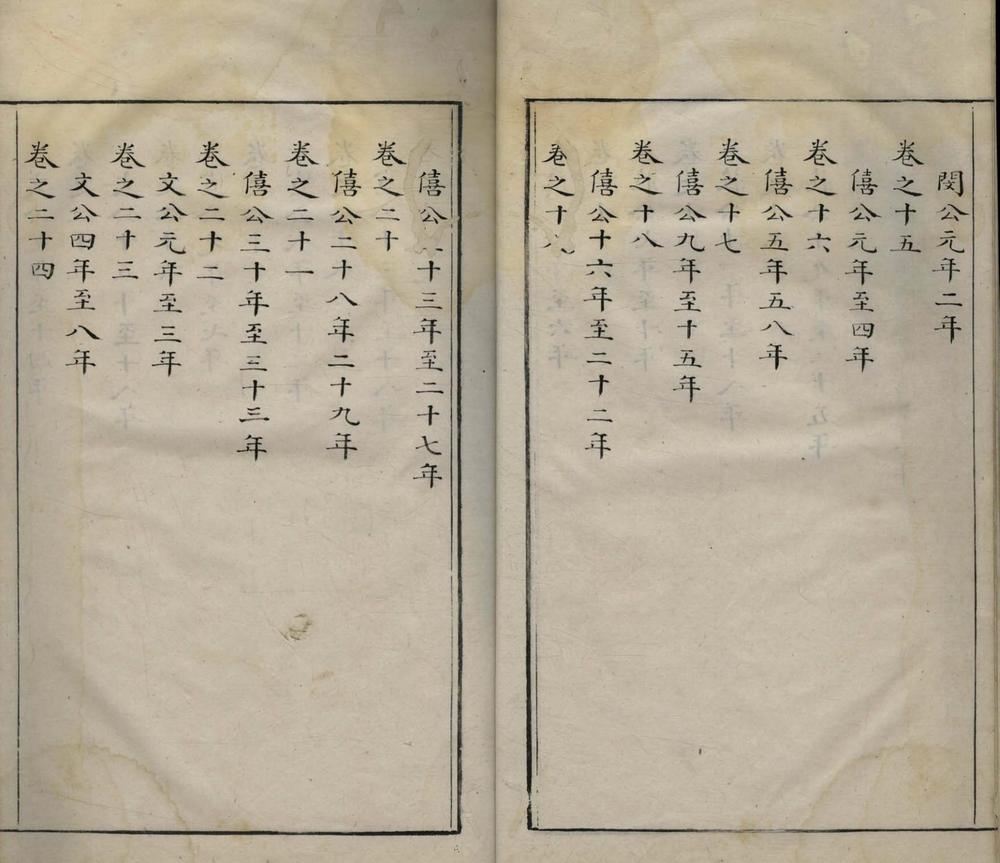 閔公元年二年
卷之十五
僖公元年至四年
卷之十六
僖公五年五八年
卷之十七
僖公九年至十五年
卷之十八
僖公十六年至二十二年
卷之十
僖公十三年至二十七年
卷之二十
僖公二十八年二十九年
卷之二十一
僖公三十年至三十三年
卷之二十二
文公元年至三年
卷之二十三
文公四年至八年
卷之二十四